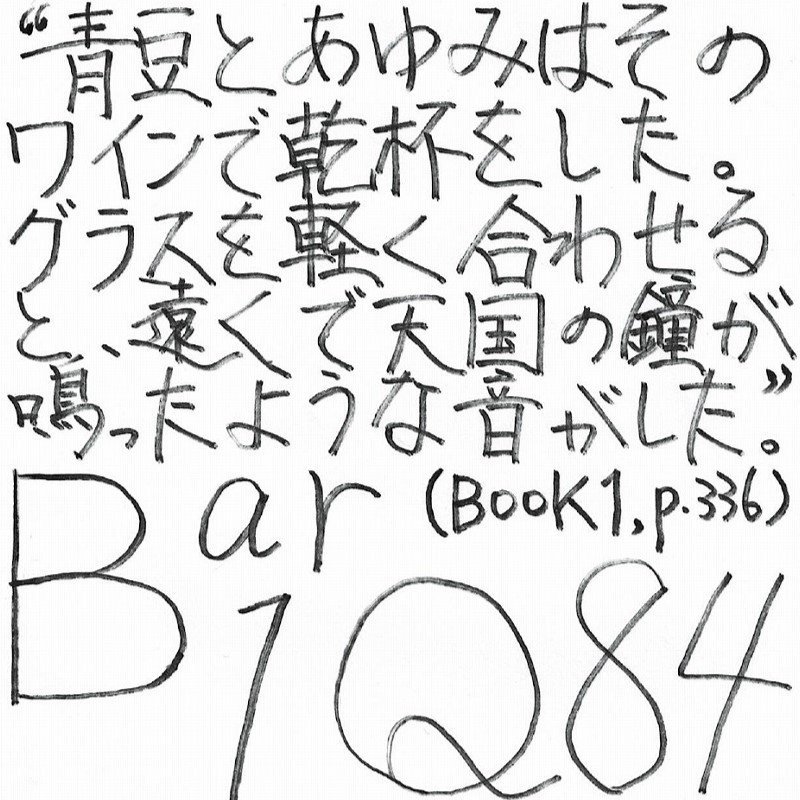 “青豆とあゆみはその
ワインで乾杯をした。
グラスを軽く合わせる
と、遠くで天国の鐘が
鳴ったような音がした。”
Bar (BOOK1, p.336)
1Q84